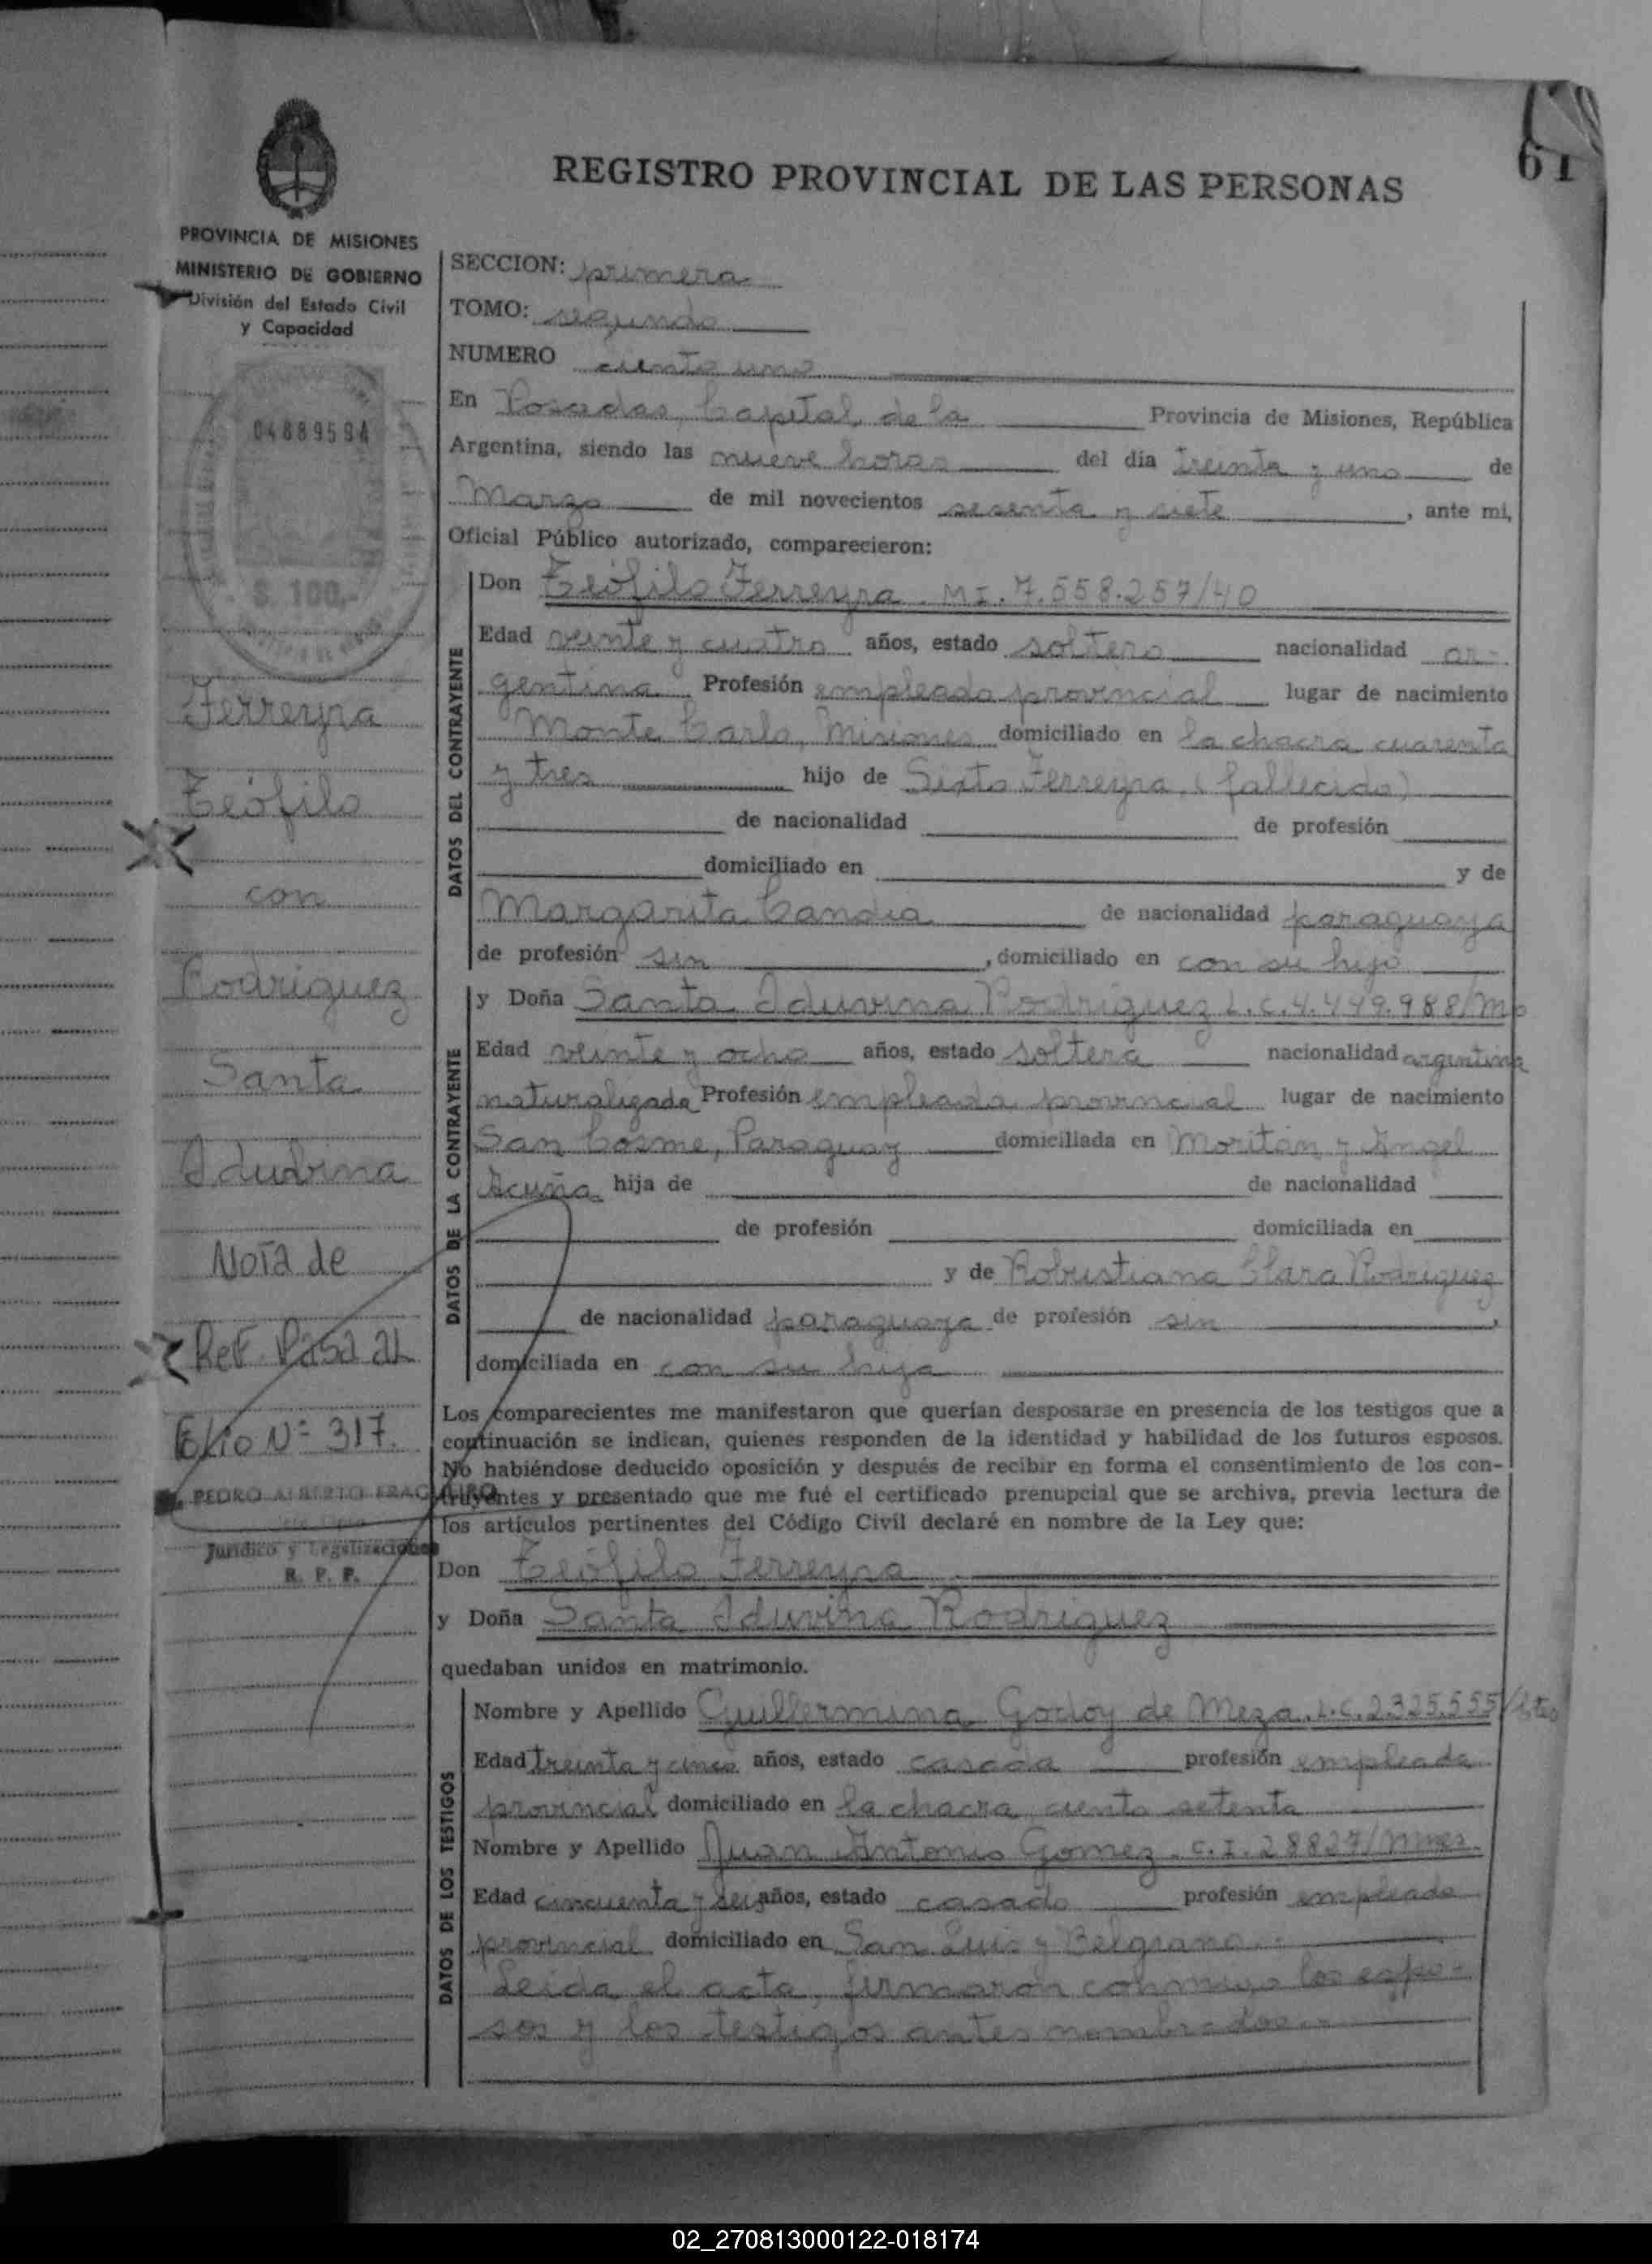 REGISTRO PROVINCIAL DE LAS PERSONAS
61
PROVINCIA DE MISIONES
MINISTERIO DE GOBIERNO
División del Estado Civil
y Capacidad
0488959A
$ 100.-
Ferreyra
Teófilo
con
Rodriguez
Santa
Iduvina
Nota de
Ref. Pasa al
Folio Nº 317.
PEDRO ALBERTO
Jurídico y Legalizaciones
R. P. P.
SECCION: primera
TOMO: segundo
NUMERO ciento uno
En Posadas, Capital de la Provincia de Misiones, República
Argentina, siendo las nueve horas del día treinta y uno de
Marzo de mil novecientos sesenta y siete, ante mi,
Oficial Público autorizado, comparecieron:
DATOS DEL CONTRAYENTE
Don Teófilo Ferreyra. M.I. 7.558.257/40
Edad veinte y cuatro años, estado soltero nacionalidad ar-
gentina Profesión empleado provincial lugar de nacimiento
Monte Carlo, Misiones domiciliado en la chacra cuarenta
y tres hijo de Sixto Ferreyra (fallecido)
de nacionalidad de profesión
domiciliado en y de
Margarita Candia de nacionalidad paraguaya
de profesión sin, domiciliado en con su hijo
DATOS DE LA CONTRAYENTE
y Doña Santa Iduvina Rodriguez L.C. 4.449.988/Mo
Edad veinte y ocho años, estado soltera nacionalidad argentina
naturalizada Profesión empleada provincial lugar de nacimiento
San Cosme, Paraguay domiciliada en Moritán y Angel
Acuña hija de de nacionalidad
de profesión domiciliada en
y de Robustiana Clara Rodriguez
de nacionalidad paraguaya de profesión sin,
domiciliada en con su hija
Los comparecientes me manifestaron que querían desposarse en presencia de los testigos que a
continuación se indican, quienes responden de la identidad y habilidad de los futuros esposos.
No habiéndose deducido oposición y después de recibir en forma el consentimiento de los con-
trayentes y presentado que me fué el certificado prenupcial que se archiva, previa lectura de
los artículos pertinentes del Código Civil declaré en nombre de la Ley que:
Don Teófilo Ferreyra
y Doña Santa Iduvina Rodriguez
quedaban unidos en matrimonio.
DATOS DE LOS TESTIGOS
Nombre y Apellido Guillermina Godoy de Meza. L.C. 2.325.555/Ctes
Edad treinta y cinco años, estado casada profesión empleada
provincial domiciliado en la chacra ciento setenta
Nombre y Apellido Juan Antonio Gomez. C.I. 28827/Mnes.
Edad cincuenta y seis años, estado casado profesión empleado
provincial domiciliado en San Luis y Belgrano.-
Leida el acta, firmaron conmigo los espo-
sos y los testigos antes nombrados.-
02_270813000122-018174